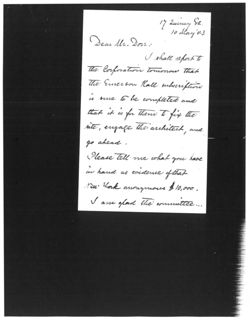 17 Quincy St.
10 May '03
Dear Mr. Dorr:
I shall report to
the Corporation tomorrow that
the Emerson Hall subscription
is sure to be completed and
that it is for them to fix the
site, engage the architect, and
go ahead.
Please tell me what you have
in hand as evidence of that
New York anonymous $10,000.
I am glad the committee